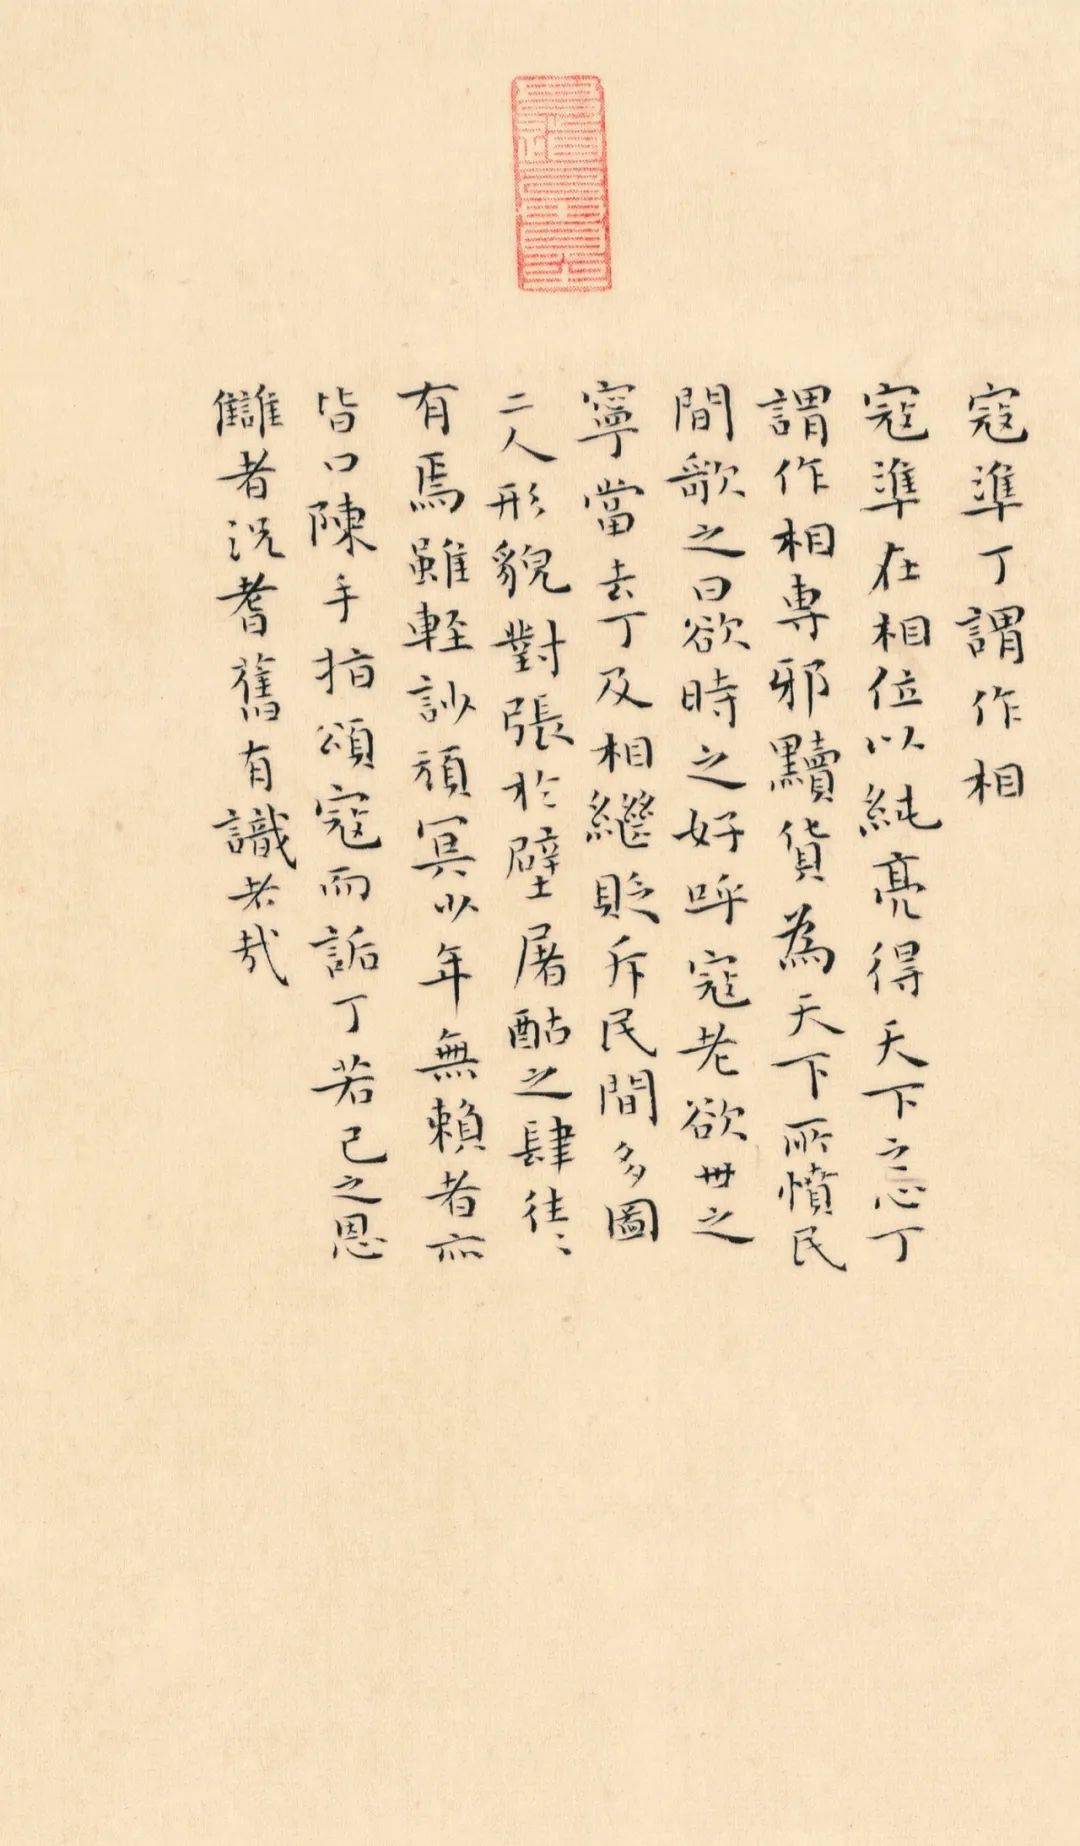 寇準丁謂作相
寇準在相位以純亮得天下之忘丁
謂作相專邪黷貨為天下所憤民
間歌之曰欲時之好呼寇老欲世之
寧當去丁及相繼貶斥民間多圖
二人形貌對張於壁屠酤之肆往〻
有焉雖輕訬頑冥少年無賴者亦
皆口陳手指頌寇而詬丁若己之恩
讎者況耆舊有識者哉